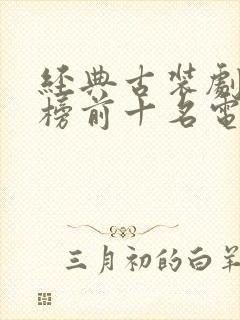 經典古裝劇
榜前十名電
三月初的白羊